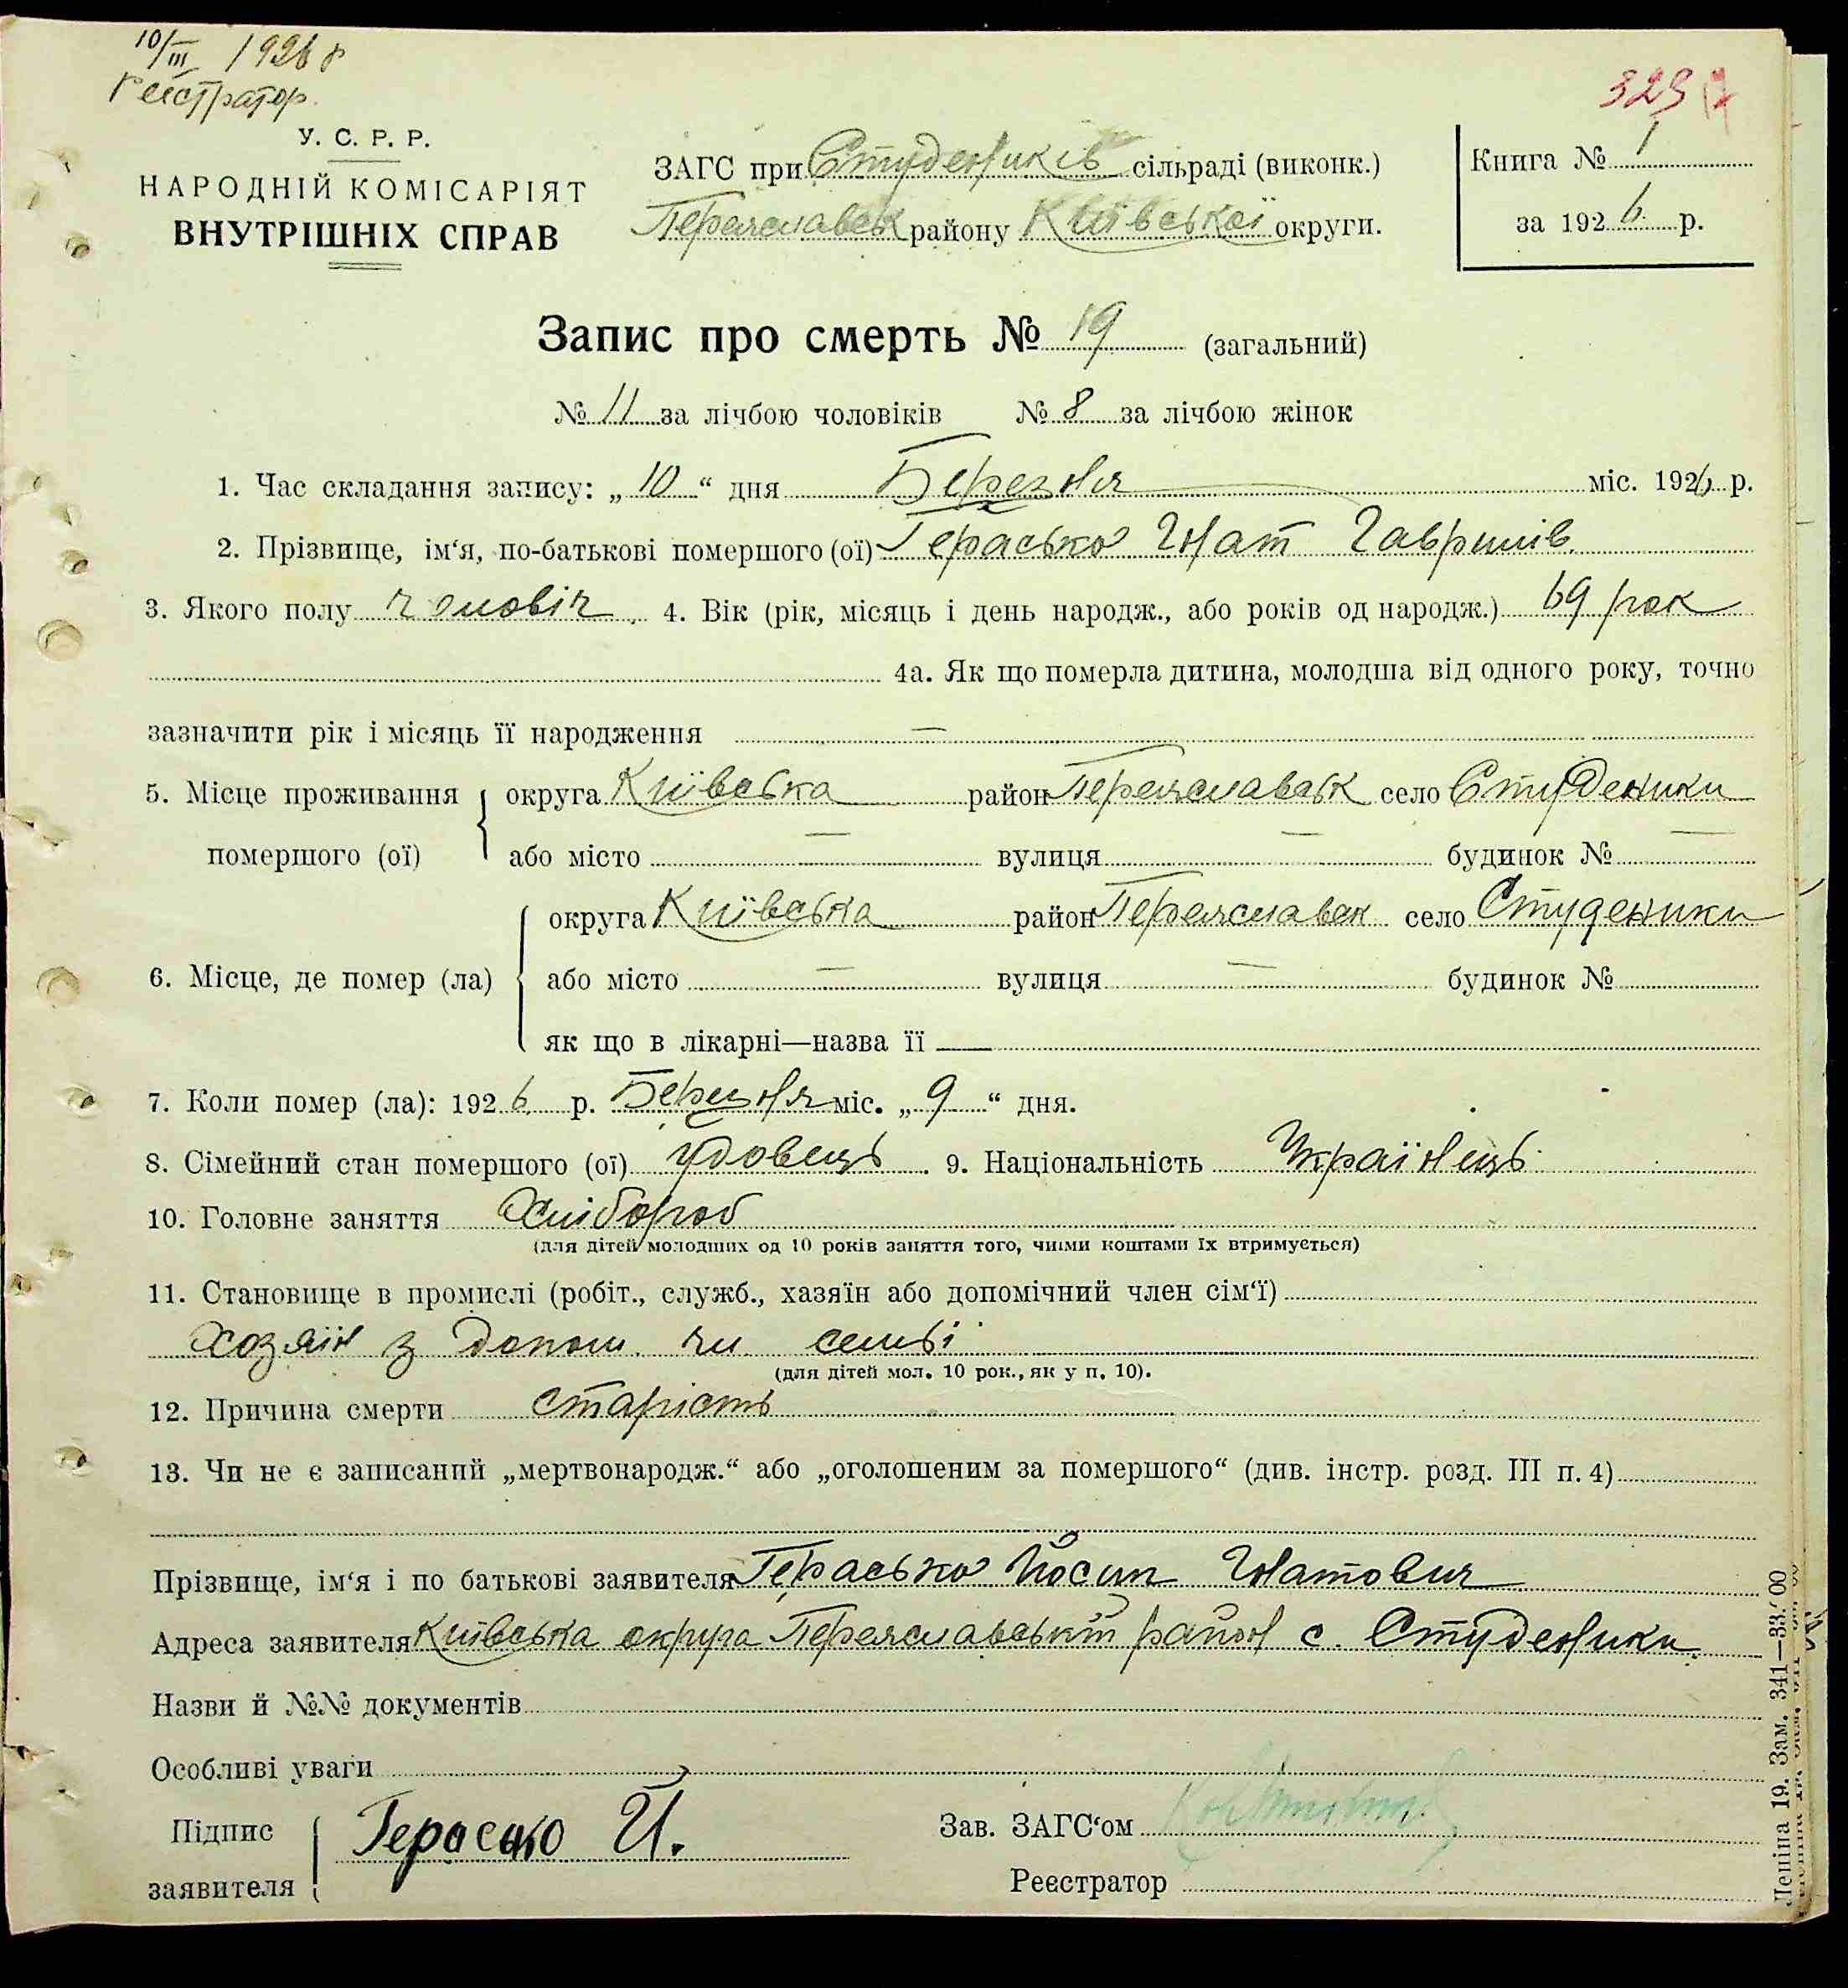 10/III 1926 р
Реєстратор.
329
У. С. Р. Р.
НАРОДНІЙ КОМІСАРІЯТ
ВНУТРІШНІХ СПРАВ
ЗАГС при Студеників сільраді (виконк.)
Переяславськ району Київської округи.
Книга № 1
за 1926 р.
Запис про смерть № 19 (загальний)
№ 11 за лічбою чоловіків № 8 за лічбою жінок
1. Час складання запису: „ 10 “ дня Березня міс. 1926 р.
2. Прізвище, ім‘я, по-батькові помершого (ої) Герасько Гнат Гаврилів.
3. Якого полу чоловіч. 4. Вік (рік, місяць і день народж., або років од народж.) 69 рок
4а. Як що померла дитина, молодша від одного року, точно
зазначити рік і місяць її народження —
5. Місце проживання округа Київська район Переяславськ село Студеники
помершого (ої) або місто — вулиця — будинок № —
округа Київська район Переяславськ село Студеники
6. Місце, де помер (ла) або місто — вулиця — будинок №
як що в лікарні—назва її —
7. Коли помер (ла): 1926 р. Березня міс. „ 9 “ дня.
8. Сімейний стан помершого (ої) удовець. 9. Національність Українець.
10. Головне заняття Хлібороб
(для дітей молодших од 10 років заняття того, чиїми коштами їх втримується)
11. Становище в промислі (робіт., служб., хазяїн або допомічний член сім‘ї)
Хозяїн з допом. чл. семьї
(для дітей мол. 10 рок., як у п. 10).
12. Причина смерти старість
13. Чи не є записаний „мертвонародж.“ або „оголошеним за помершого“ (див. інстр. розд. III п. 4)
Прізвище, ім‘я і по батькові заявителя Герасько Йосип Гнатович
Адреса заявителя Київська округа Переяславський район с. Студеники.
Назви й №№ документів
Особливі уваги
Підпис заявителя Герасько Й.
Зав. ЗАГС‘ом
Реєстратор
Леніна 19. Зам. 341—33.000